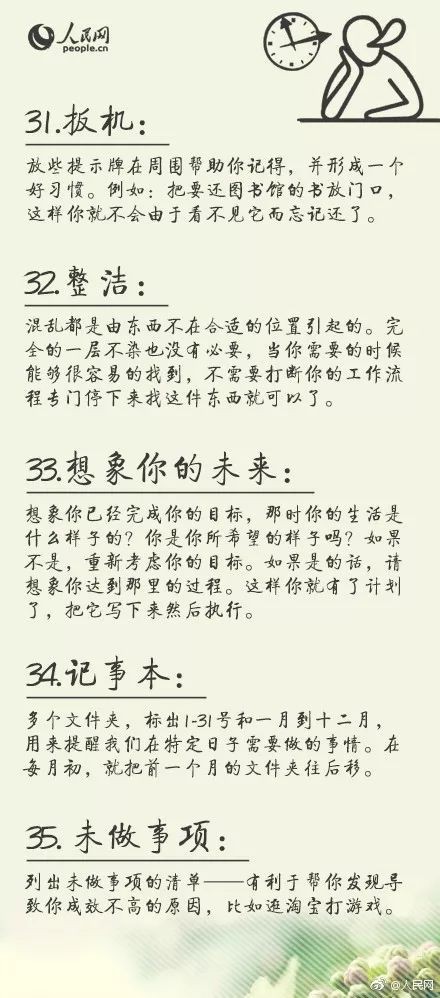 人民网
people.cn
31.扳机：
放些提示牌在周围帮助你记得，并形成一个
好习惯。例如：把要还图书馆的书放门口，
这样你就不会由于看不见它而忘记还了。
32.整洁：
混乱都是由东西不在合适的位置引起的。完
全的一层不染也没有必要，当你需要的时候
能够很容易的找到，不需要打断你的工作流
程专门停下来找这件东西就可以了。
33.想象你的未来：
想象你已经完成你的目标，那时你的生活是
什么样子的？你是你所希望的样子吗？如果
不是，重新考虑你的目标。如果是的话，请
想象你达到那里的过程。这样你就有了计划
了，把它写下来然后执行。
34.记事本：
多个文件夹，标出1-31号和一月到十二月，
用来提醒我们在特定日子需要做的事情。在
每月初，就把前一个月的文件夹往后移。
35.未做事项：
列出未做事项的清单——有利于帮你发现导
致你成效不高的原因，比如逛淘宝打游戏。
@人民网